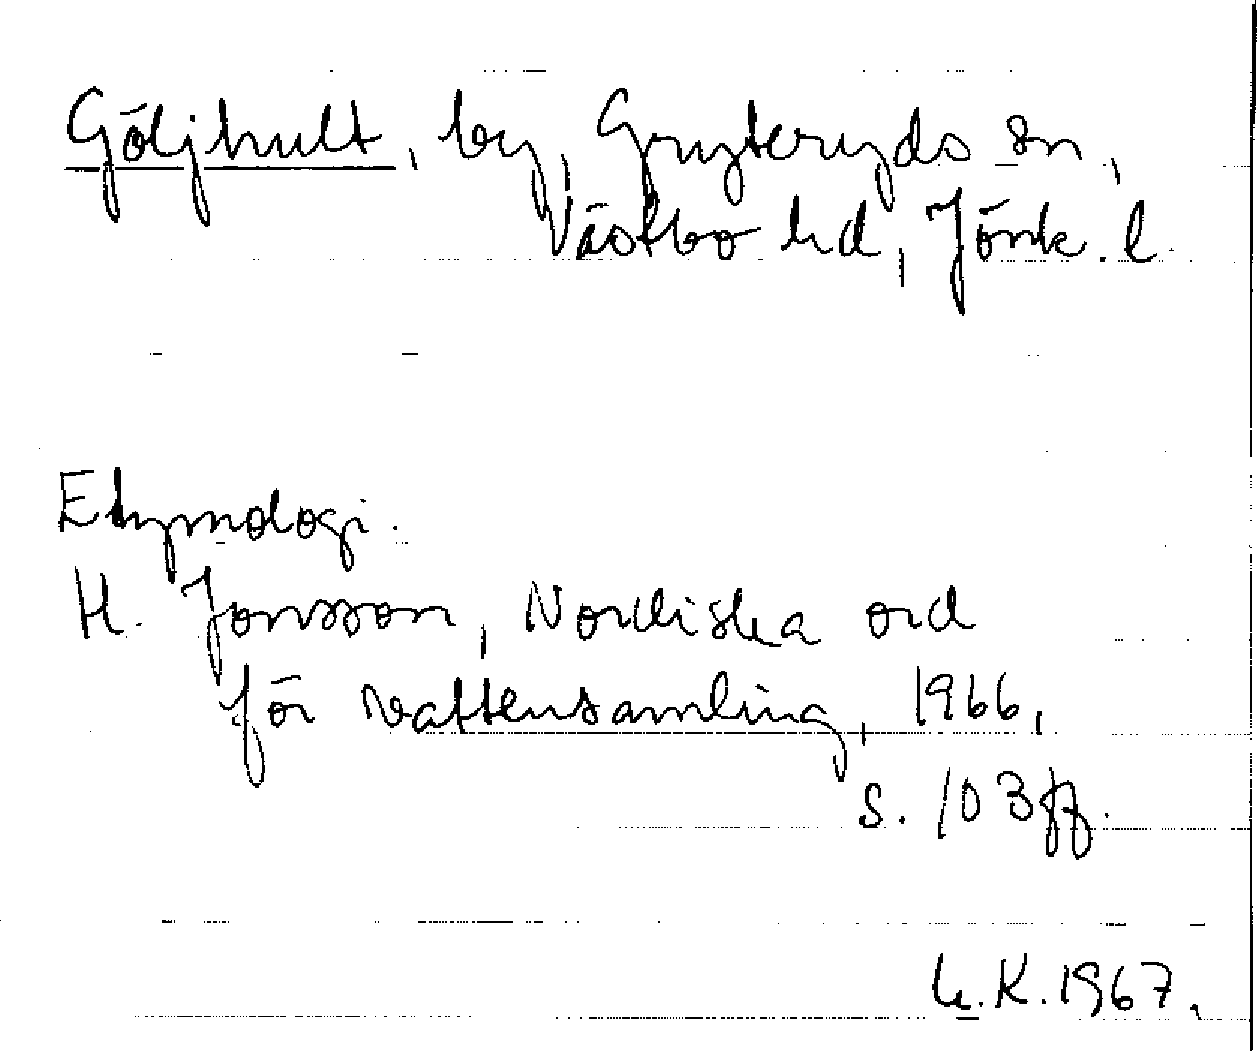 Göljhult, by, Gryteryds sn,
Västbo hd, Jönk. l.
Etymologi.
H. Jonsson, Nordiska ord
för vattensamling, 1966,
s. 103 ff.
K. 1967.